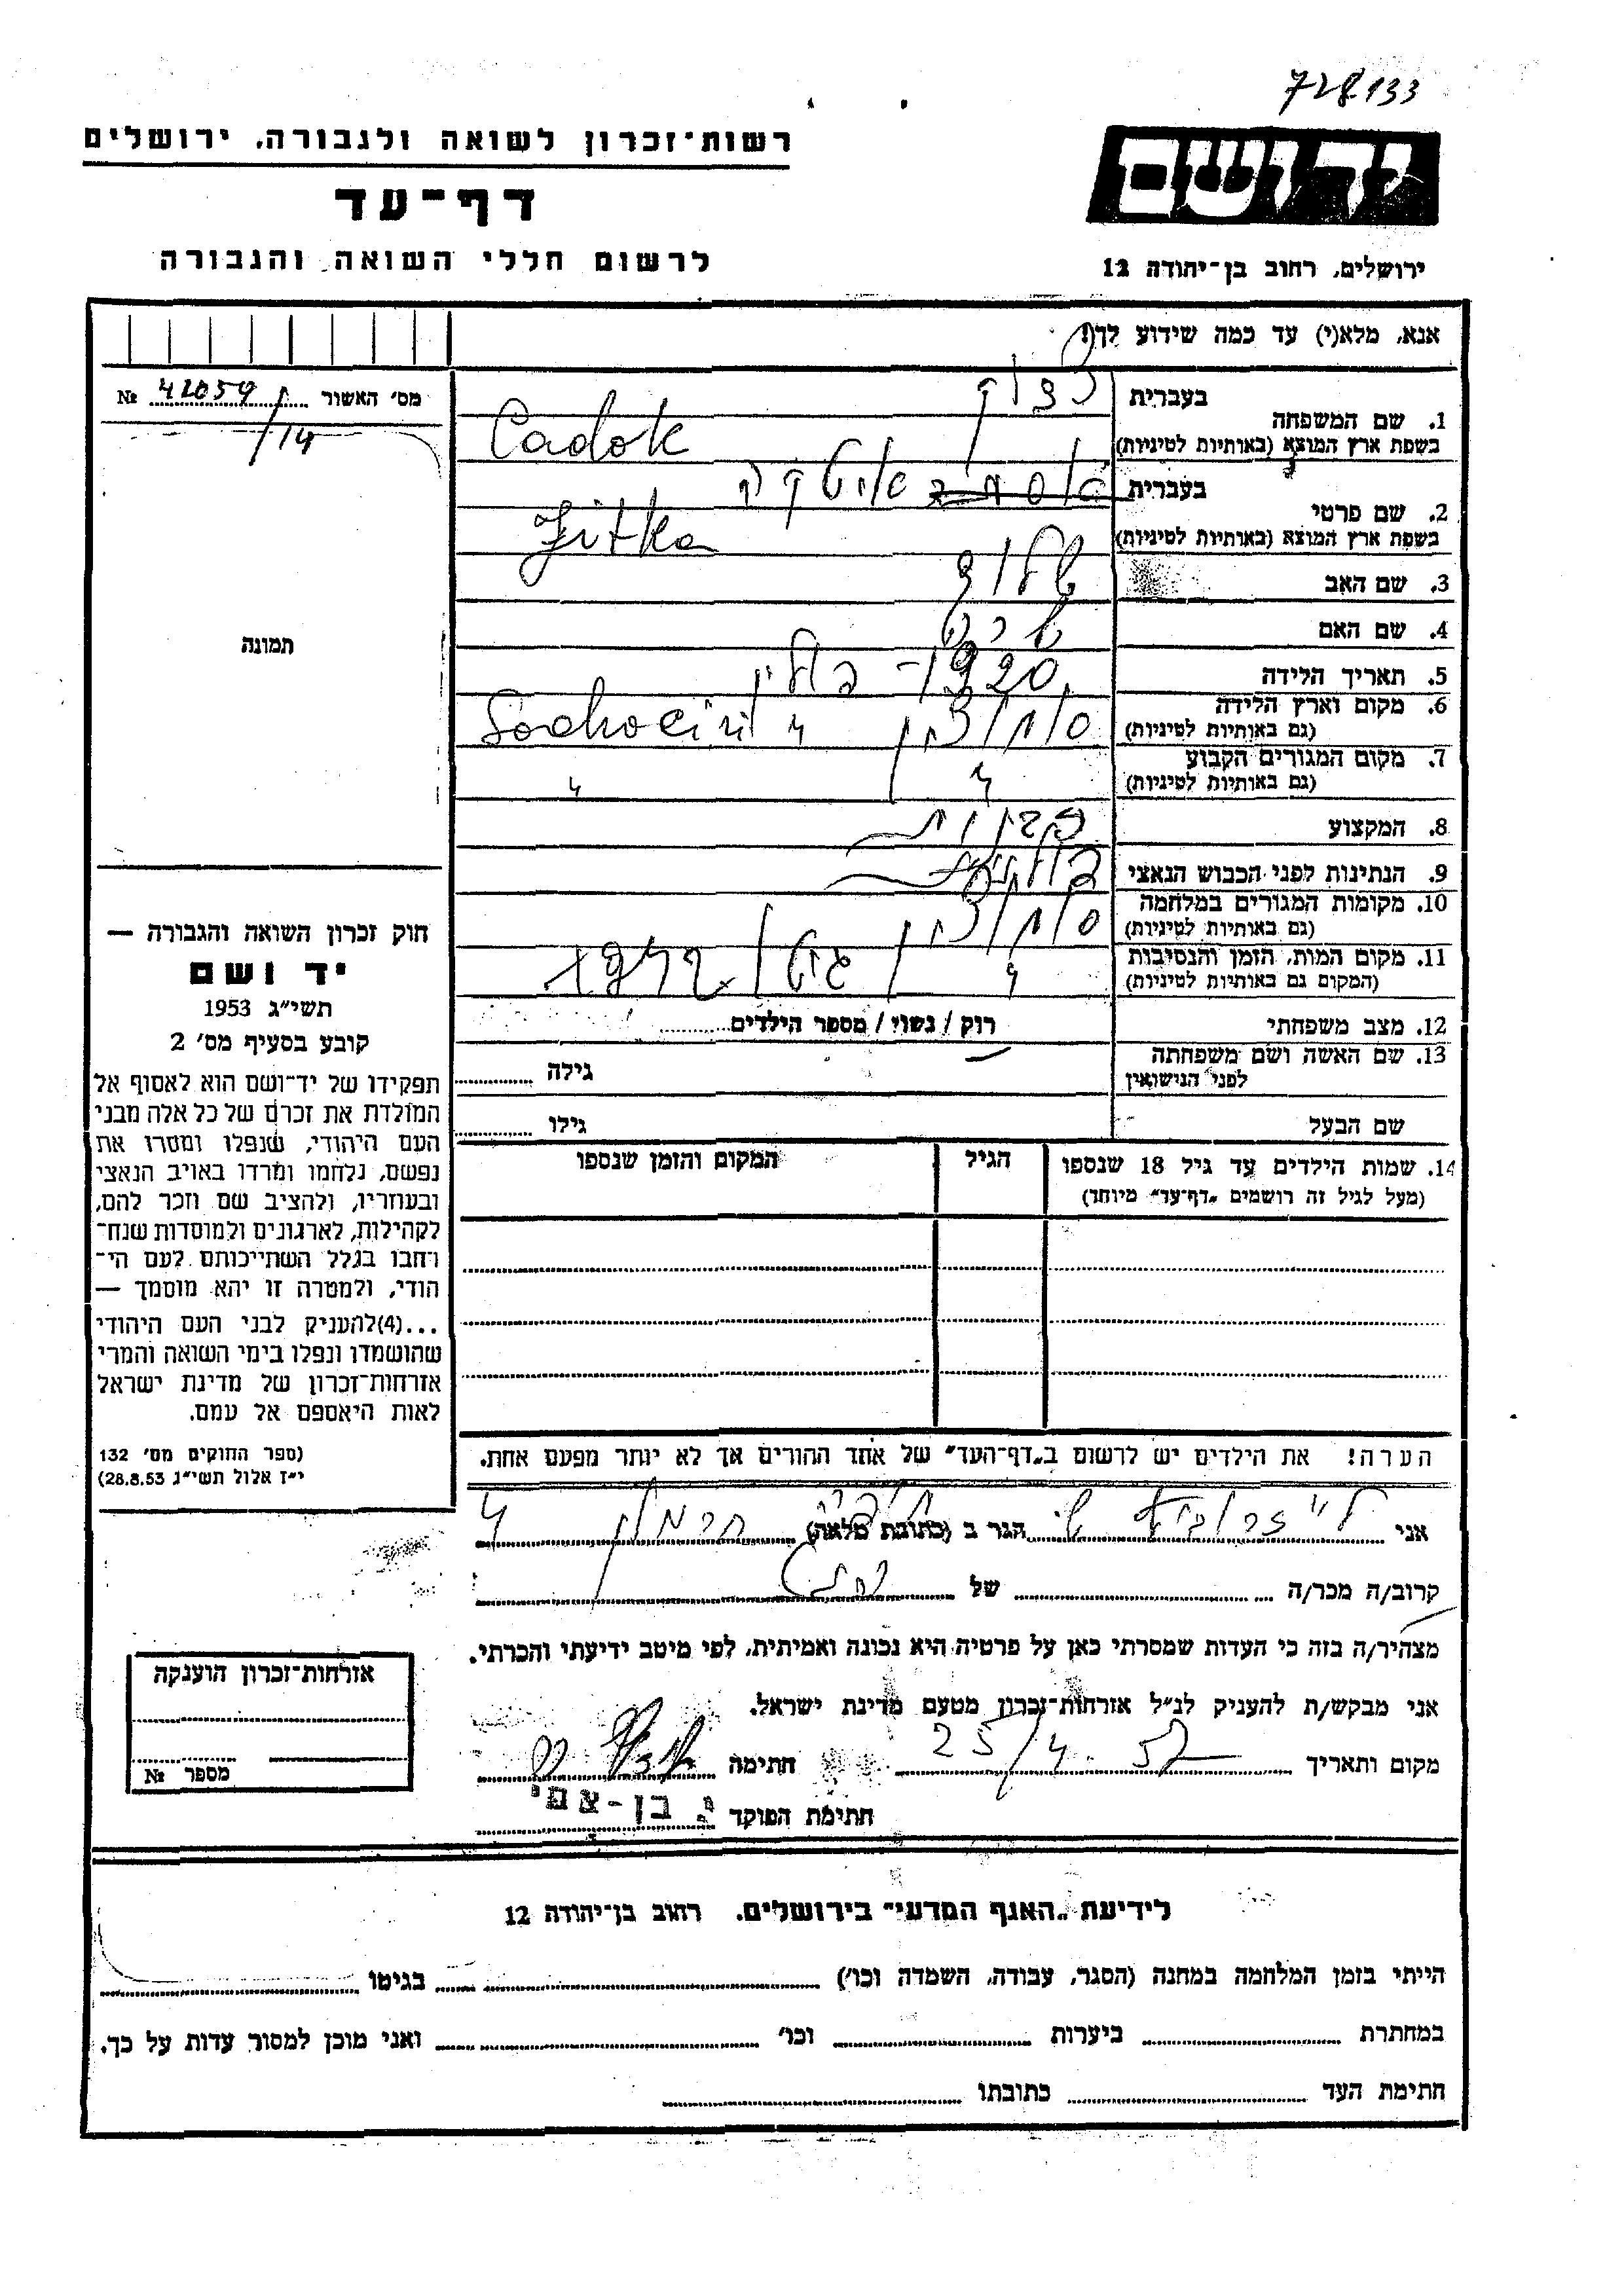 728133
רשות־זכרון לשואה ולגבורה, ירושלים
דף־עד
לרשום חללי השואה והגבורה
יד ושם
ירושלים, רחוב בן־יהודה 12
אנא, מלא(י) עד כמה שידוע לך!
מס' האשור 42059/14 №
תמונה
1. שם המשפחה
בעברית צדוק
בשפת ארץ המוצא (באותיות לטיניות) Cadok
2. שם פרטי
בעברית
בשפת ארץ המוצא (באותיות לטיניות) Jitka
3. שם האב
4. שם האם
5. תאריך הלידה 1920 - פולין
6. מקום וארץ הלידה
(גם באותיות לטיניות) סוחוצין Sochocin
7. מקום המגורים הקבוע
(גם באותיות לטיניות) " "
8. המקצוע
9. הנתינות לפני הכבוש הנאצי פולנית
10. מקומות המגורים במלחמה
(גם באותיות לטיניות) סוחוצין
11. מקום המות, הזמן והנסיבות
(המקום גם באותיות לטיניות) " / גיטו 1942
12. מצב משפחתי רוק / נשוי / מספר הילדים
13. שם האשה ושם משפחתה
לפני הנישואין
גילה
שם הבעל
גילו
14. שמות הילדים עד גיל 18 שנספו
(מעל לגיל זה רושמים „דף־עד" מיוחד)
הגיל
המקום והזמן שנספו
חוק זכרון השואה והגבורה —
יד ושם
תשי"ג 1953
קובע בסעיף מס' 2
תפקידו של יד־ושם הוא לאסוף אל
המולדת את זכרם של כל אלה מבני
העם היהודי, שנפלו ומסרו את
נפשם, נלחמו ומרדו באויב הנאצי
ובעוזריו, ולהציב שם וזכר להם,
לקהילות, לארגונים ולמוסדות שנח־
רבו בגלל השתייכותם לעם הי־
הודי, ולמטרה זו יהא מוסמך —
...(4)להעניק לבני העם היהודי
שהושמדו ונפלו בימי השואה והמרי
אזרחות־זכרון של מדינת ישראל
לאות היאספם אל עמם.
(ספר החוקים מס' 132
י"ז אלול תשי"ג 28.8.53)
הערה! את הילדים יש לרשום ב„דף־העד" של אחד ההורים אך לא יותר מפעם אחת.
אני הגר ב (כתובת מלאה) 4
קרוב/ה מכר/ה של
מצהיר/ה בזה כי העדות שמסרתי כאן על פרטיה היא נכונה ואמיתית, לפי מיטב ידיעתי והכרתי.
אני מבקש/ת להעניק לנ"ל אזרחות־זכרון מטעם מדינת ישראל.
מקום ותאריך 25/4. 57 חתימה
חתימת הפוקד
אזרחות־זכרון הוענקה
מספר №
לידיעת „האגף המדעי" בירושלים. רחוב בן־יהודה 12
הייתי בזמן המלחמה במחנה (הסגר, עבודה, השמדה וכו') בגיטו
במחתרת ביערות וכו' ואני מוכן למסור עדות על כך.
חתימת העד כתובתו